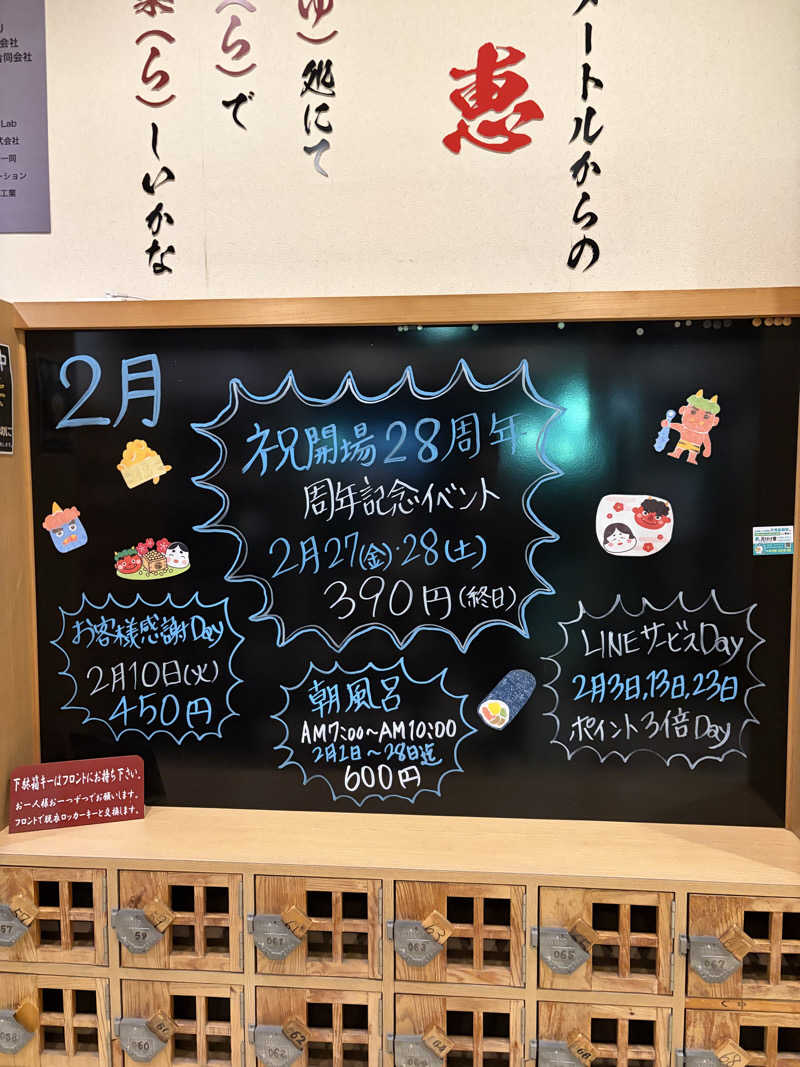 ートルからの
恵
ゆ)処にて
(ら)で
楽(ら)しいかな
会社
合同会社
Lab
式会社
一同
ーション
工業
2月
祝開場28周年
周年記念イベント
2月27(金)・28(土)
390円(終日)
お客様感謝Day
2月10日(火)
450円
朝風呂
AM7:00〜AM10:00
2月1日〜28日迄
600円
LINEサービスDay
2月3日,13日,23日
ポイント3倍Day
下駄箱キーはフロントにお持ち下さい。
お一人様お一つずつでお願いします。
フロントで脱衣ロッカーキーと交換します。
57
59
61
063
065
067
58
60
62
64
68